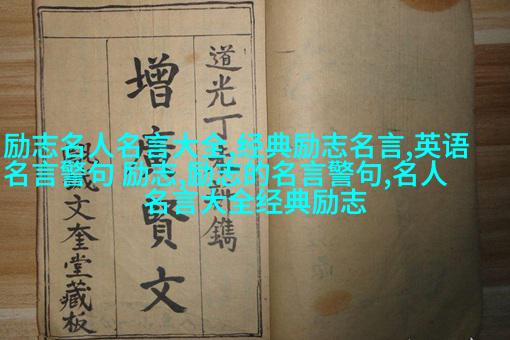 励志名人名言大全,经典励志名言,英语
名言警句 励志,励志的名言警句,名人
名言大全经典励志
道光丁新鐫
增廣賢文
文奎堂藏板